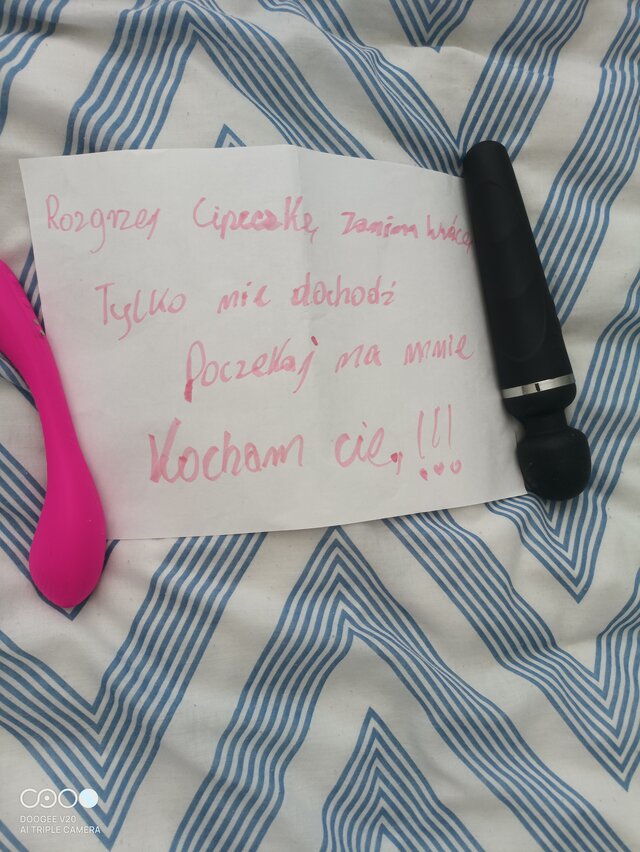 Rozgrzej Cipeczkę zanim wrócę
Tylko nie dochodź
Poczekaj na mnie
Kocham cię, !!!
DOOGEE V20
AI TRIPLE CAMERA